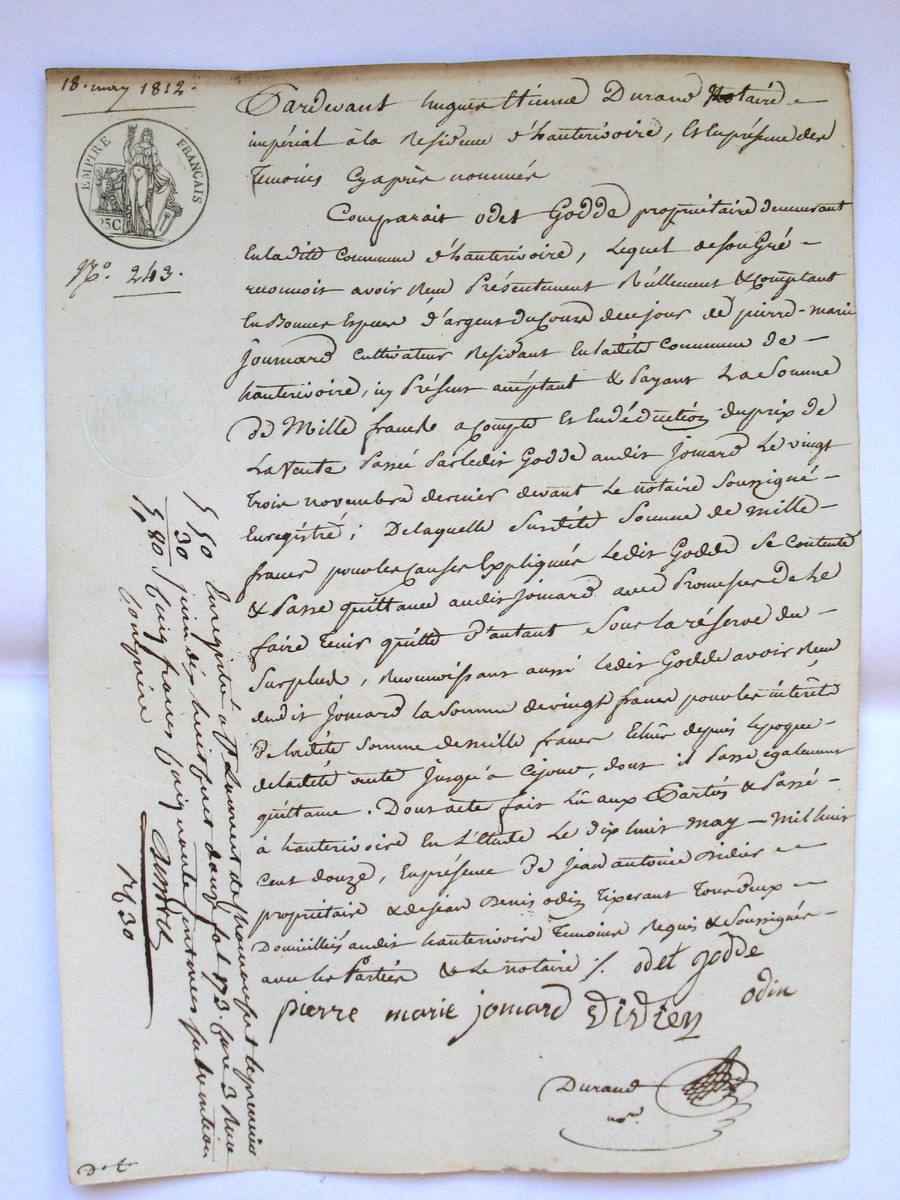 18. may 1812.
EMPIRE FRANÇAIS
25C
N.º 243.
Pardevant hugues Etienne Durand Notaire
impérial à la Residence d'hauterivoire, Et en présence des
Temoins Cyaprès nommés
Comparait odet Godde propriétaire demeurant
En ladite Commune d'hauterivoire, Lequel de son Gré
reconnoit avoir Reçu Présentement Réellement & Comptant
En Bonnes Espèces d'argent du Cours de ce jour de pierre-marie
Joumard Cultivateur Residant En ladite Commune de
hauterivoire, icy Présent acceptant & Payant La Somme
De Mille francs a Compte Et En déduction du prix de
La Vente Passé Par ledit Godde audit Jomard Le vingt
trois novembre dernier devant Le notaire Soussigné
Enregistré ; De laquelle Susdite Somme de mille
francs pour les Causes Expliquées ledit Godde Se Contente
& Passe quittance audit Jomard avec Promesses de Le
faire Tenir quitte D'autant Sous la réserve du
Surplus, Reconnoissant aussi Ledit Godde avoir Reçu
dudit Jomard la Somme de vingt francs pour les intérêts
De ladite Somme de mille francs Echus depuis Lepoque
de ladite vente Jusqu'à Cejour, dont il Passe également
quittance. Dont acte fait Lû aux Parties & Passé
à hauterivoire En L'Etude Le dix huit may mil huit
Cent douze, En présence De Jean antoine Didier
propriétaire & de Jean Denis odin Tixerant Tous deux
Domiciliés audit hauterivoire Temoins Requis & Soussignés
avec les Parties & Le notaire ./. odet godde
pierre marie jomard Didier odin
Durand
nore.
Enregistré à St Laurent de Chamousset le premier
juin dix huit cent douze fol. 173. Case 3 Reçu
Cinq francs Cinquante Centimes subvention
Comprise
5 50
30
5 80